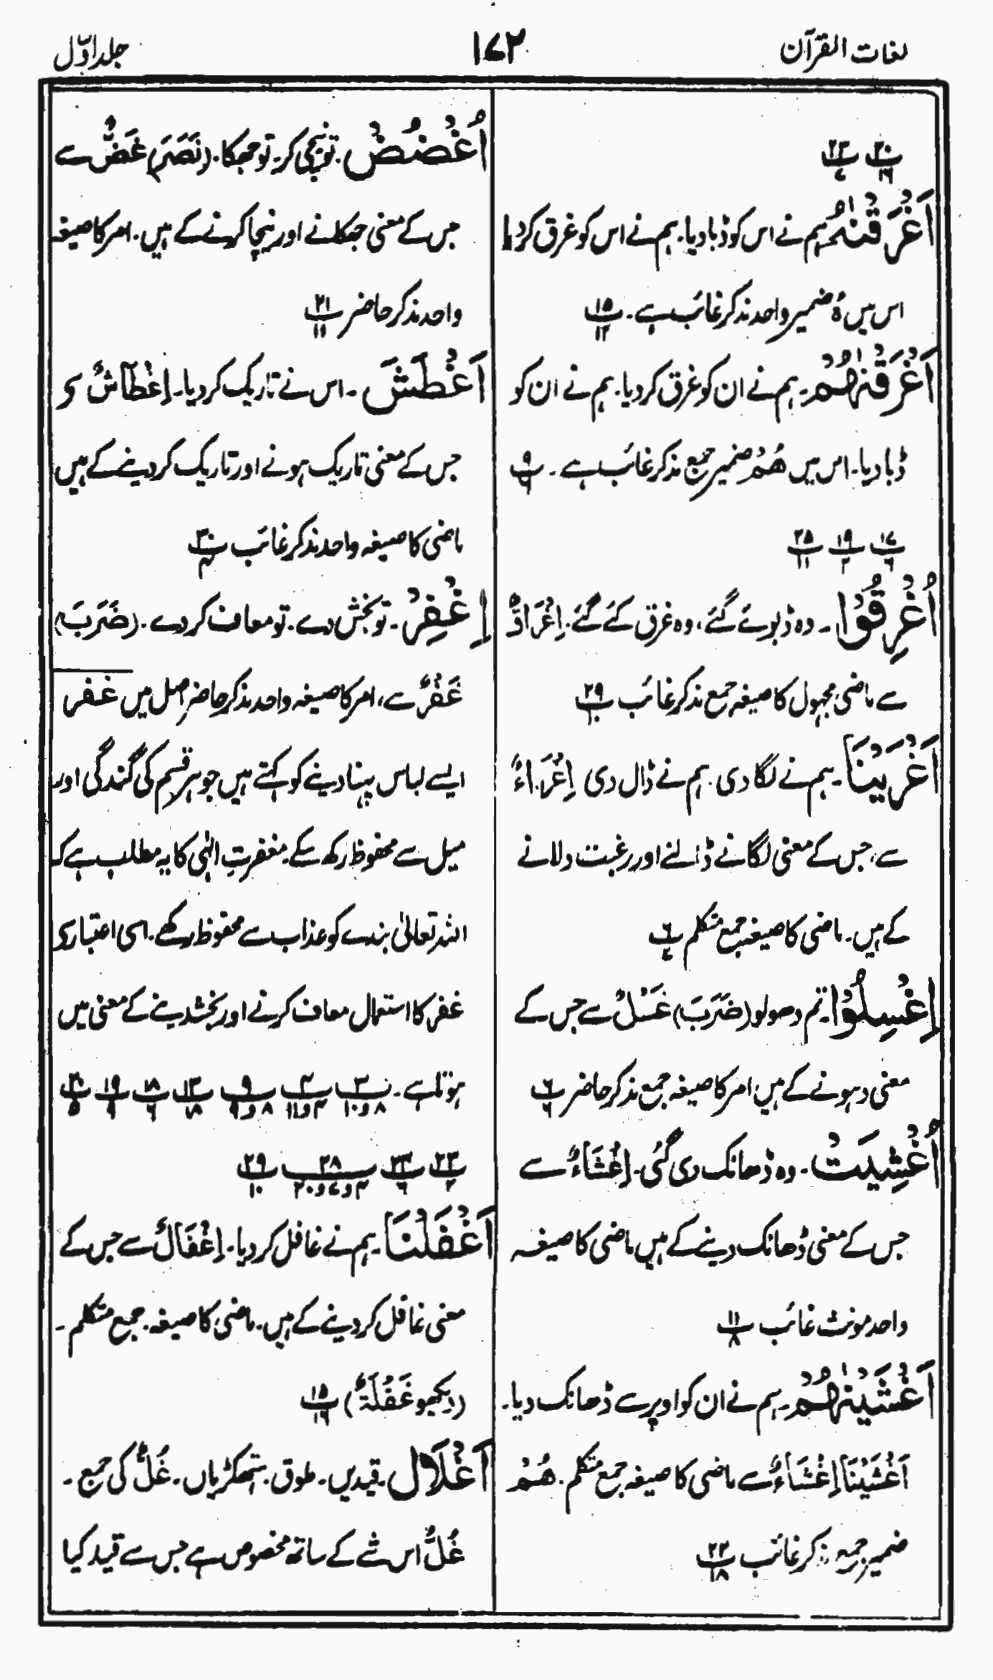 لغات القرآن
۱۷۲
جلد اوّل
۲۰/۱۶ ۲۳/۷
اَغْرَقْنٰهُ ہم نے اس کو ڈبا دیا۔ ہم نے اس کو غرق کردیا
اس میں ہٗ ضمیر واحد مذکر غائب ہے۔ ۱۵/۱۲
اَغْرَقْنٰهُمْ۔ ہم نے ان کو غرق کردیا۔ ہم نے ان کو
ڈبا دیا۔ اس میں هُمْ ضمیر جمع مذکر غائب ہے۔ ۹/۶
۱۷/۶ ۱۹/۲ ۲۵/۱۱
اُغْرِقُوْا۔ وہ ڈبوئے گئے، وہ غرق کئے گئے۔ اِغْرَاقٌ
سے ماضی مجہول کا صیغہ جمع مذکر غائب ۲۹/۱۰
اَغْرَيْنَا۔ ہم نے لگا دی۔ ہم نے ڈال دی اِغْرَاءٌ
سے، جس کے معنی لگانے ڈالنے اور رغبت دلانے
کے ہیں۔ ماضی کا صیغہ جمع متکلم ۶/۷
اِغْسِلُوْا۔ تم دھولو (ضَرَبَ) غَسْلٌ سے جس کے
معنی دہونے کے ہیں امر کا صیغہ جمع مذکر حاضر ۶/۶
اُغْشِيَتْ۔ وہ ڈھانک دی گئی۔ اِغْشَاءٌ سے
جس کے معنی ڈھانک دینے کے ہیں ماضی کا صیغہ
واحد مونث غائب ۱۱/۸
اَغْشَيْنٰهُمْ۔ ہم نے ان کو اوپر سے ڈھانک دیا۔
اَغْشَيْنَا اِغْشَاءٌ سے ماضی کا صیغہ جمع متکلم۔ هُمْ
ضمیر جمع مذکر غائب ۲۲/۱۸
اُغْضُضْ۔ تو نیچی کر۔ تو جھکا۔ (نَصَرَ) غَضٌّ سے
جس کے معنی جھکانے اور نیچا کرنے کے ہیں۔ امر کا صیغہ
واحد مذکر حاضر ۲۱/۱۱
اَغْطَشَ۔ اس نے تاریک کردیا۔ اِغْطَاشٌ سے
جس کے معنی تاریک ہونے اور تاریک کردینے کے ہیں
ماضی کا صیغہ واحد مذکر غائب ۳۰/۴
اِغْفِرْ۔ تو بخش دے۔ تو معاف کردے۔ (ضَرَبَ)
غَفْرٌ سے، امر کا صیغہ واحد مذکر حاضر اصل میں غفر
ایسے لباس پہنا دینے کو کہتے ہیں جو ہر قسم کی گندگی اور
میل سے محفوظ رکھ سکے۔ مغفرتِ الٰہی کا یہ مطلب ہے کہ
اللہ تعالیٰ بندے کو عذاب سے محفوظ رکھے۔ اسی اعتبار سے
غفر کا استعمال معاف کرنے اور بخشدینے کے معنی میں
ہوتا ہے۔ ۳/۸و۱۰ ۴/۴و۱۱ ۹/۸و۹ ۱۳/۱۸ ۱۸/۶ ۱۹/۹ ۲۰/۵
۲۳/۲ ۲۳/۶ ۲۸/۴و۷و۲۰ ۲۹/۱۰
اَغْفَلْنَا۔ ہم نے غافل کردیا۔ اِغْفَالٌ سے جس کے
معنی غافل کردینے کے ہیں۔ ماضی کا صیغہ۔ جمع متکلم۔
(دیکھو غَفْلَةٌ) ۱۵/۱۶
اَغْلَالٌ۔ قیدیں۔ طوق۔ ہتھکڑیاں۔ غُلٌّ کی جمع۔
غُلٌّ اس شے کے ساتھ مخصوص ہے جس سے قید کیا